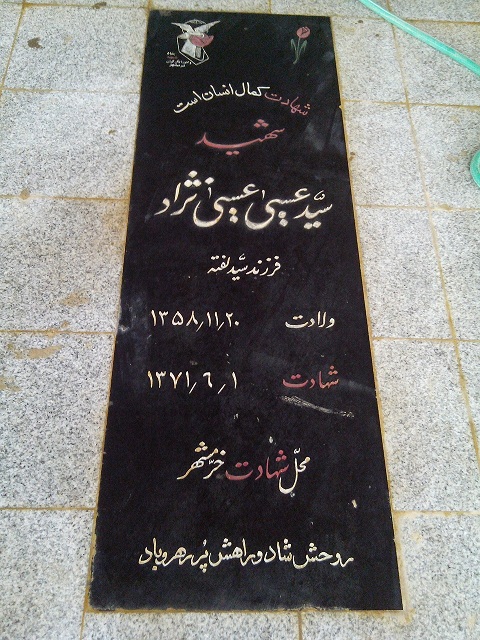 شهادت کمال انسان است
شهید
سیّد عیسیٰ عیسیٰ نژاد
فرزند سیّد لفته
ولادت ۱۳۵۸٫۱۱٫۲۰
شهادت ۱۳۷۱٫۶٫۱
محلّ شهادت خرّمشهر
روحش شاد و راهش پُر رهرو باد